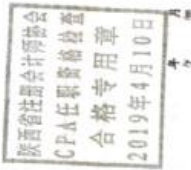 陕西省注册会计师协会
CPA任职资格检查
合格专用章
2019年4月10日
年 月